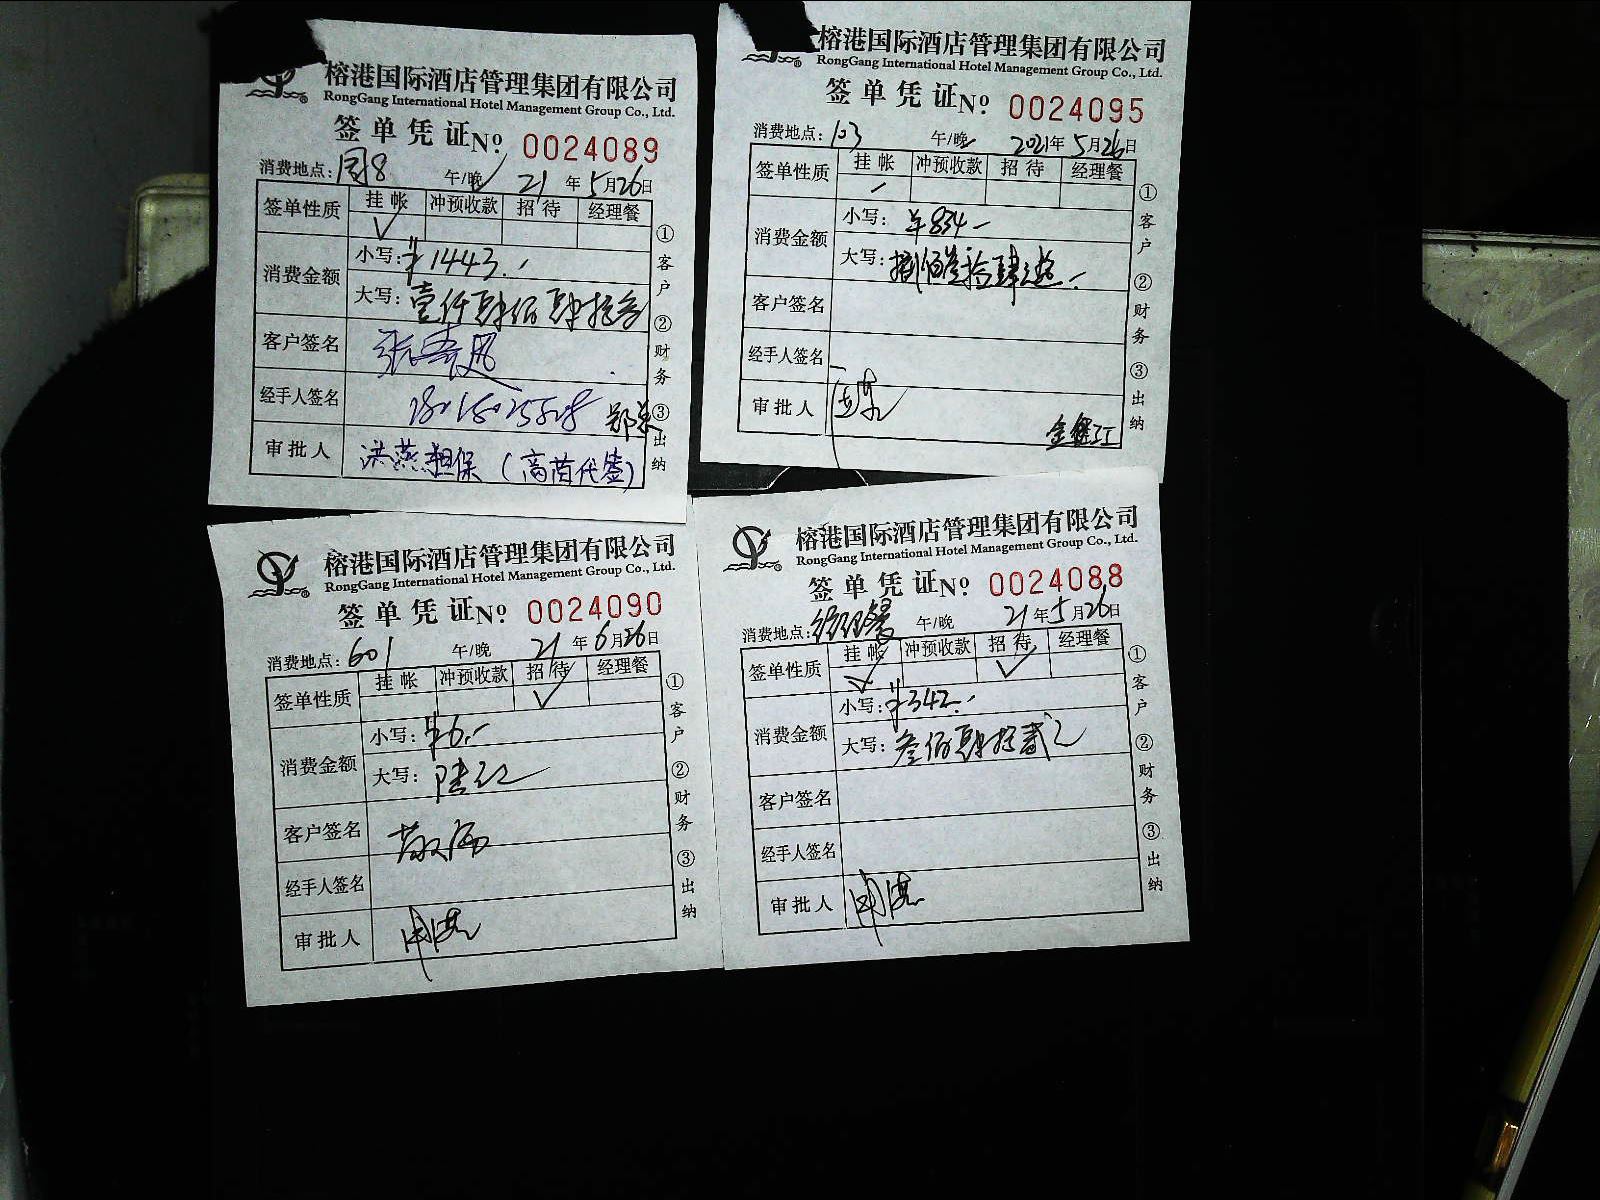 榕港国际酒店管理集团有限公司
RongGang International Hotel Management Group Co., Ltd.
签单凭证 No. 0024089
消费地点: 周8 午/晚 21年5月26日
签单性质 挂帐 冲预收款 招待 经理餐
消费金额 小写: ¥1443.-
大写: 壹仟肆佰肆拾叁
客户签名
经手人签名
审批人 洪燕担保(高茵代签)
①客户 ②财务 ③出纳
榕港国际酒店管理集团有限公司
RongGang International Hotel Management Group Co., Ltd.
签单凭证 No. 0024095
消费地点: 103 午/晚 2021年5月26日
签单性质 挂帐 冲预收款 招待 经理餐
消费金额 小写: ¥834-
大写: 捌佰叁拾肆元整
客户签名
经手人签名
审批人
金继江
①客户 ②财务 ③出纳
榕港国际酒店管理集团有限公司
RongGang International Hotel Management Group Co., Ltd.
签单凭证 No. 0024090
消费地点: 601 午/晚 21年6月26日
签单性质 挂帐 冲预收款 招待 经理餐
消费金额 小写: ¥6.-
大写: 陆元
客户签名
经手人签名
审批人
①客户 ②财务 ③出纳
榕港国际酒店管理集团有限公司
RongGang International Hotel Management Group Co., Ltd.
签单凭证 No. 0024088
消费地点: 经理餐 午/晚 21年5月26日
签单性质 挂帐 冲预收款 招待 经理餐
消费金额 小写: ¥342.-
大写: 叁佰肆拾贰元
客户签名
经手人签名
审批人
①客户 ②财务 ③出纳